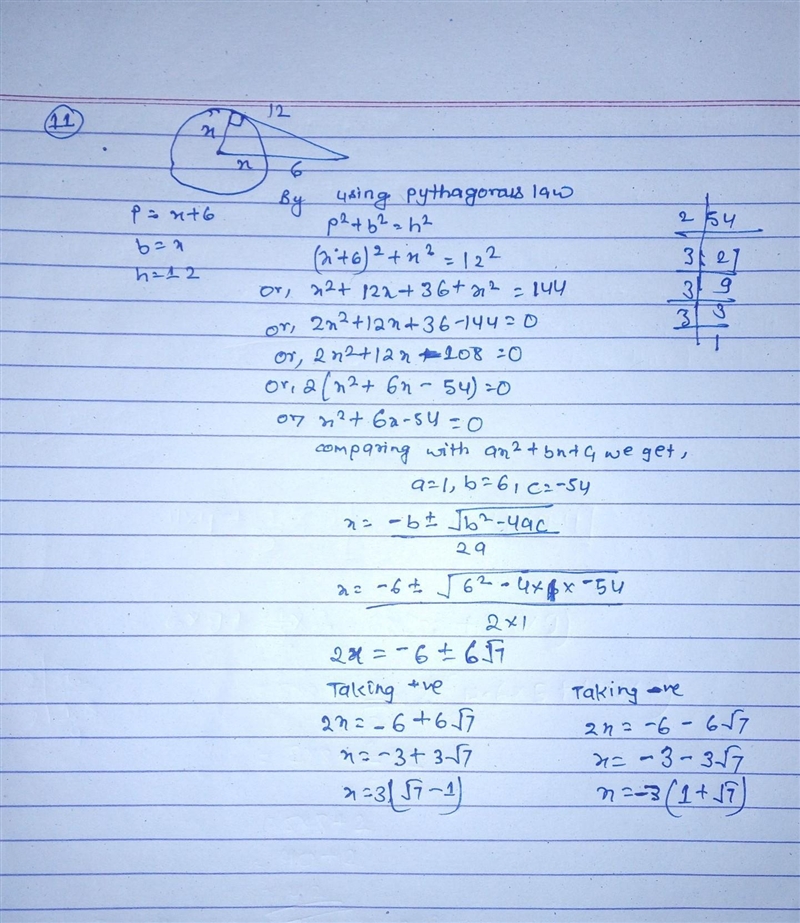 11
12
x
x
6
By using pythagoras law
p = x+6
p²+b²=h²
b = x
(x+6)²+x²=12²
h=12
or, x²+12x+36+x²=144
or, 2x²+12x+36-144=0
or, 2x²+12x-108=0
or, 2(x²+6x-54)=0
or x²+6x-54=0
comparing with ax²+bx+c, we get,
a=1, b=6, c=-54
x= -b±√b²-4ac
2a
x= -6±√6²-4×1×-54
2×1
2x=-6±6√7
Taking +ve
2x=-6+6√7
x=-3+3√7
x=3(√7-1)
Taking -ve
2x=-6-6√7
x=-3-3√7
x=-3(1+√7)
2 54
3 27
3 9
3 3
1